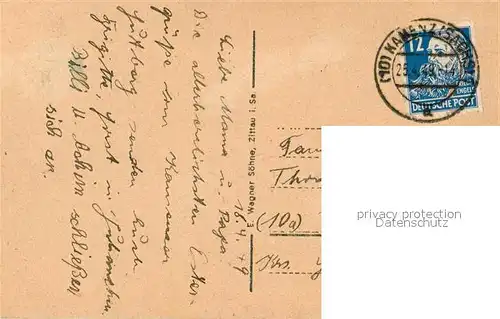 16.4.49
Liebe Mama u. Papa
Die allerherzlichsten Oster-
grüße vom Kamenzer
Hutberg senden Euch
Brigitte, Horst u. Gretchen
Willi u. Achim schließen
sich an.
E. Wagner Söhne, Zittau i. Sa.
(10) KAMENZ (SACHS)
a
12
ENGELS
DEUTSCHE POST
Fam
(10a)
Krs.
privacy protection
Datenschutz